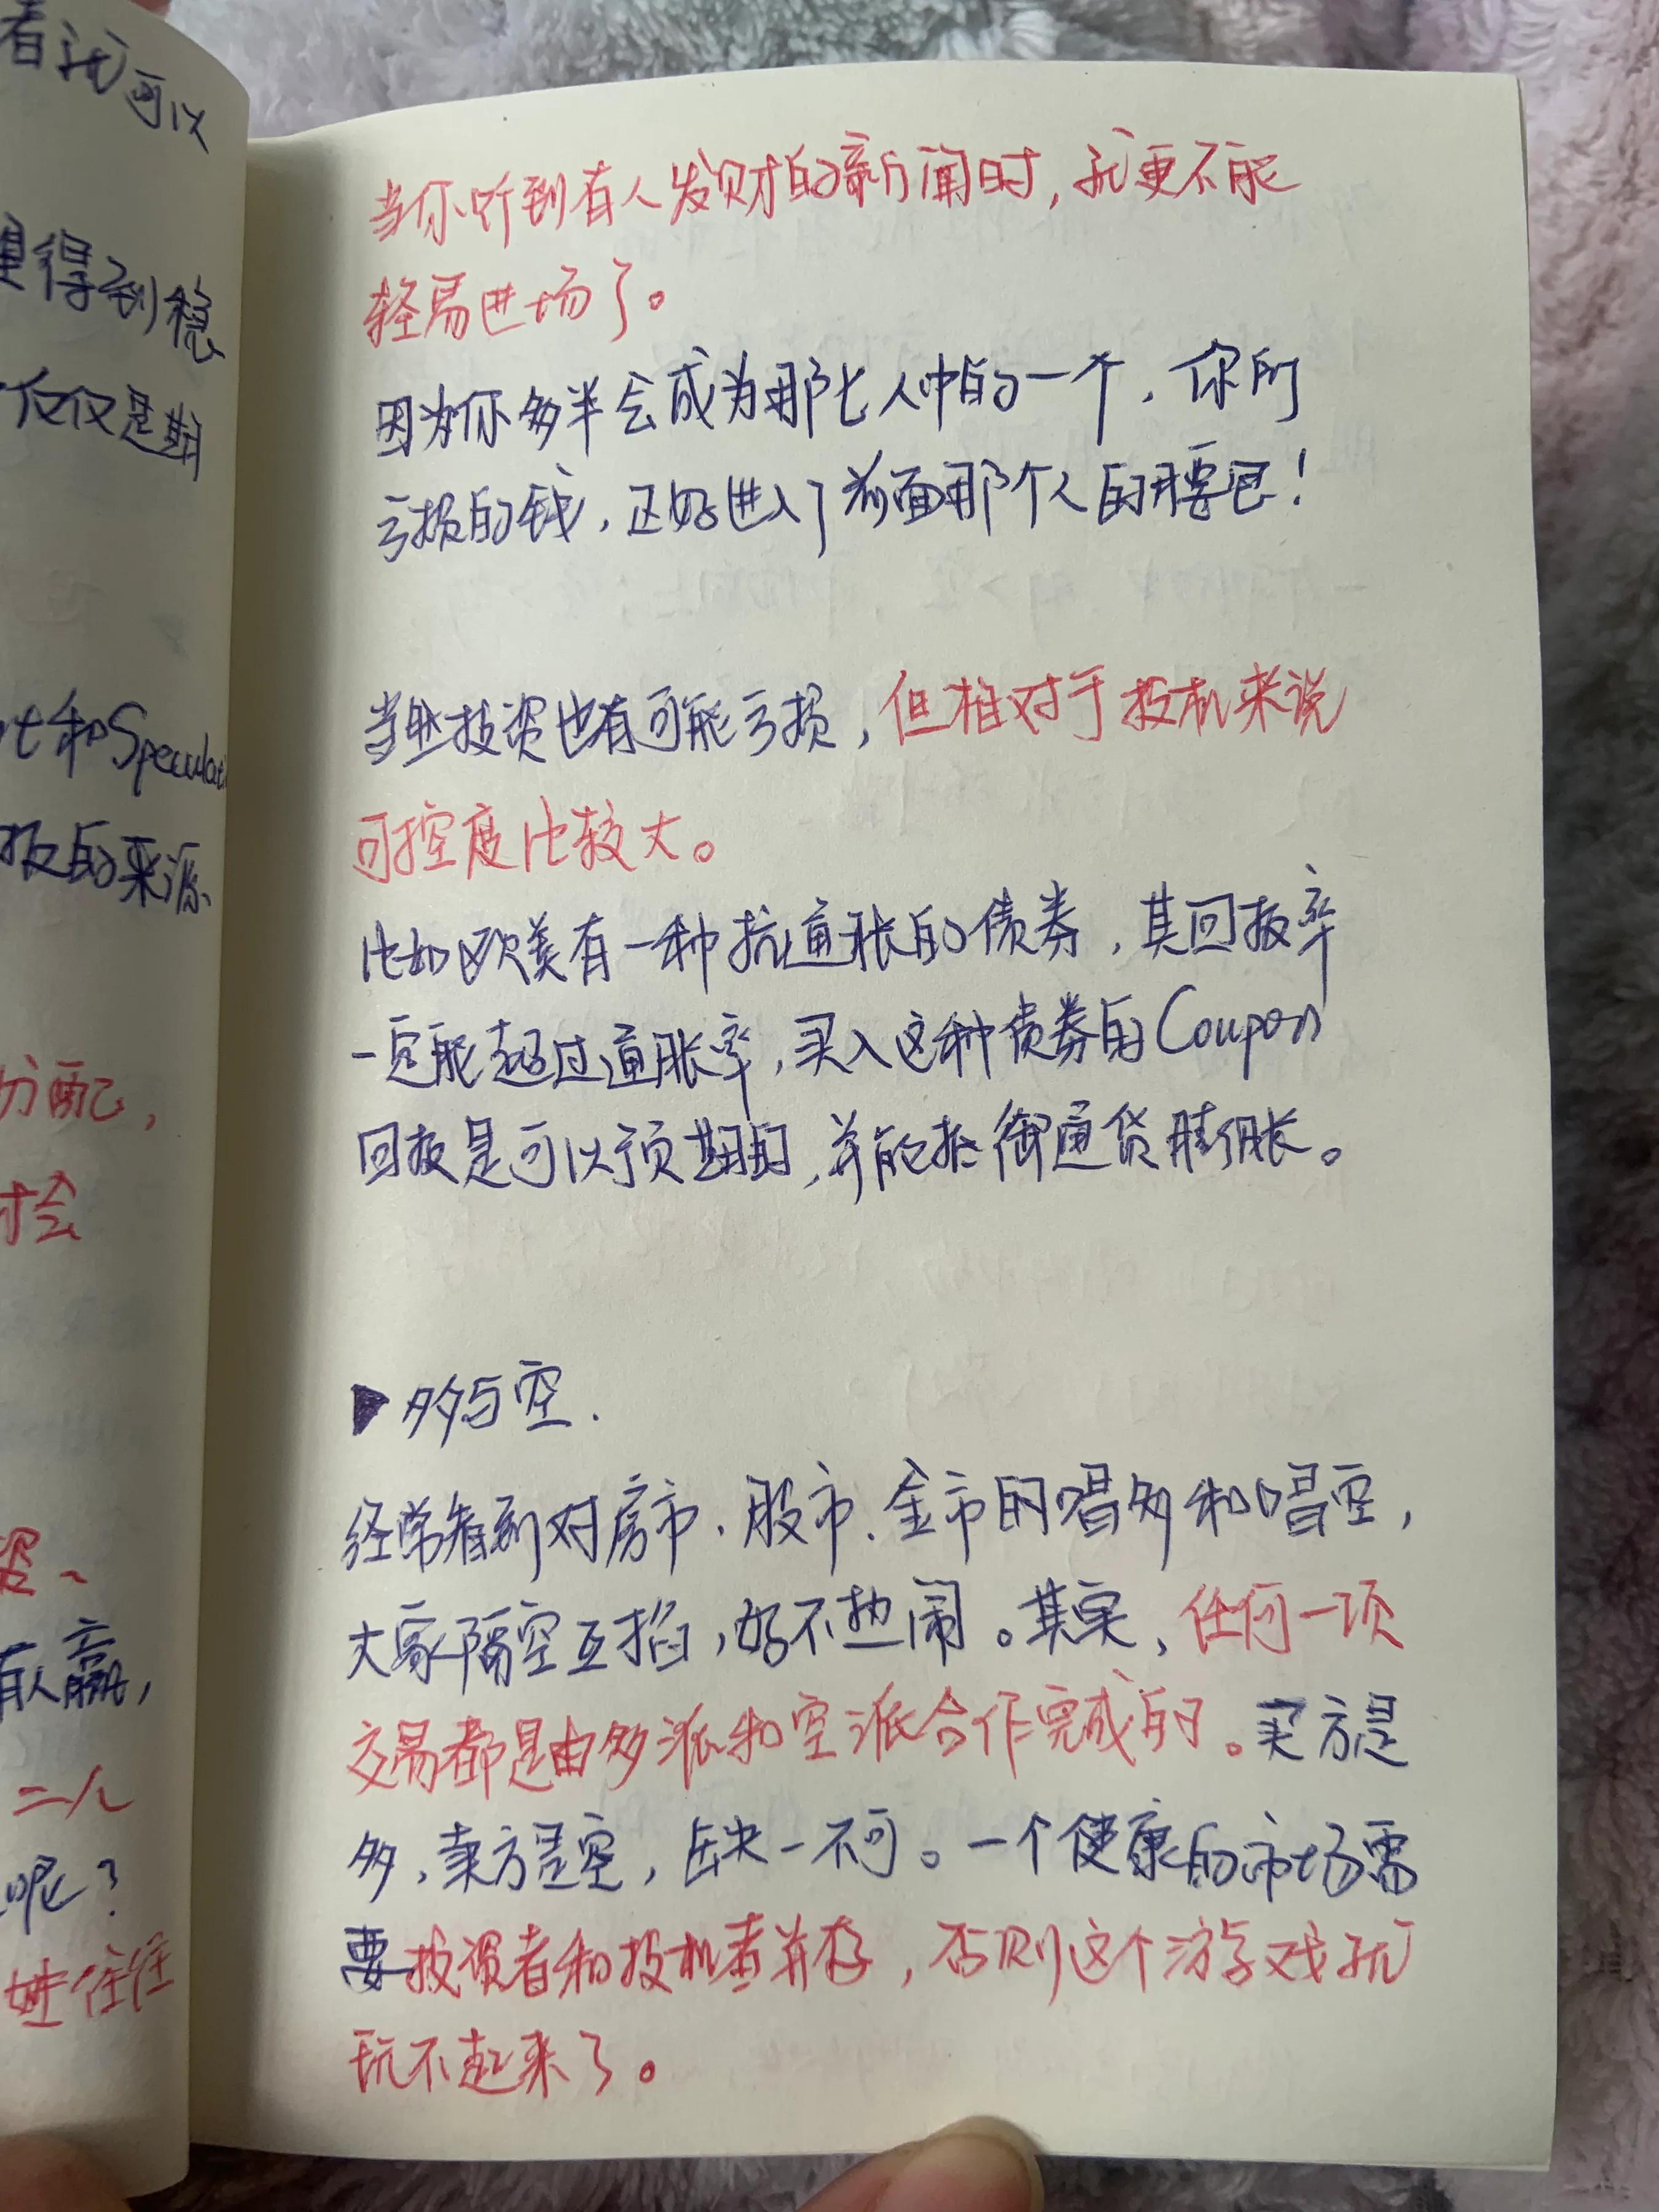 看就可以
得到稳
仅仅是期
和Speculat
报的来源
分配，
才会
有人赢，
二八
呢？
往往
当你听到有人发财的新闻时，就更不能
轻易进场了。
因为你多半会成为那七人中的一个，你所
亏损的钱，正好进入了前面那个人的腰包！
当然投资也有可能亏损，但相对于投机来说
可控度比较大。
比如欧美有一种抗通胀的债券，其回报率
一定能超过通胀率，买入这种债券的Coupon
回报是可以预期的，并能抵御通货膨胀。
▶多与空.
经常看到对房市、股市、金市的唱多和唱空，
大家隔空互掐，好不热闹。其实，任何一项
交易都是由多派和空派合作完成的。买方是
多，卖方是空，缺一不可。一个健康的市场需
要投资者和投机者并存，否则这个游戏就
玩不起来了。